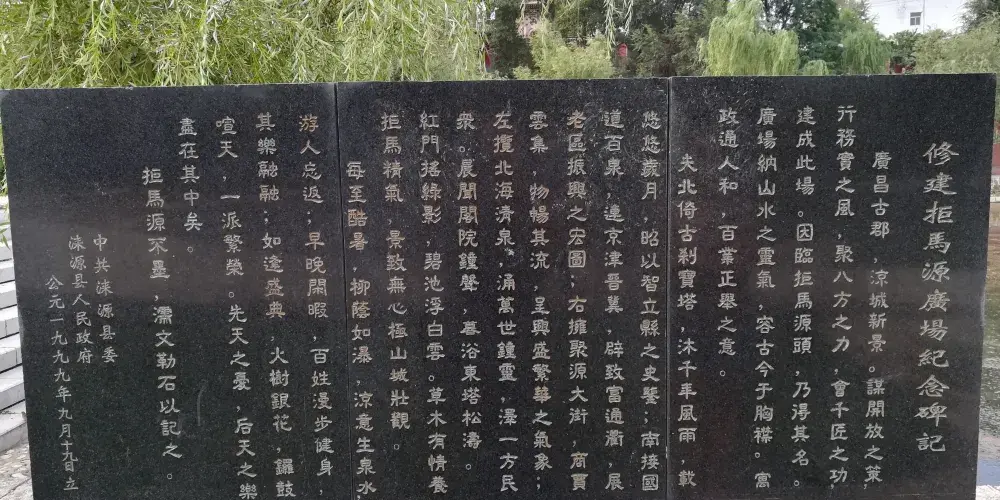 修建拒馬源廣場紀念碑記
廣昌古郡，涼城新景。謀開放之策，
行務實之風，聚八方之力，會千匠之功，
建成此場。因臨拒馬源頭，乃得其名。
廣場納山水之靈氣，容古今于胸襟。寓
政通人和，百葉正舉之意。
夫北倚古刹寶塔，沐千年風雨，載
悠悠歲月，昭以智立縣之史鑒；南接國
道百泉，連京津晋冀，辟致富通衢，展
老區振興之宏圖；右擁聚源大街，商賈
雲集，物暢其流，呈興盛繁華之氣象；
左攬北海清泉，涌萬世鐘靈，澤一方民
衆。晨聞閣院鐘聲，暮浴東塔松濤。
紅門搖綠影，碧池浮白雲。草木有情養
拒馬精氣，景致無心極山城壯觀。
每至酷暑，柳蔭如瀑，涼意生泉水，
游人忘返；早晚閑暇，百姓漫步健身，
其樂融融；如逢盛典，火樹銀花，鑼鼓
喧天，一派繁榮。先天之憂，后天之樂
盡在其中矣。
拒馬源不墨，濡文勒石以記之。
中共涞源县委
涞源县人民政府
公元一九九九年九月十九日立